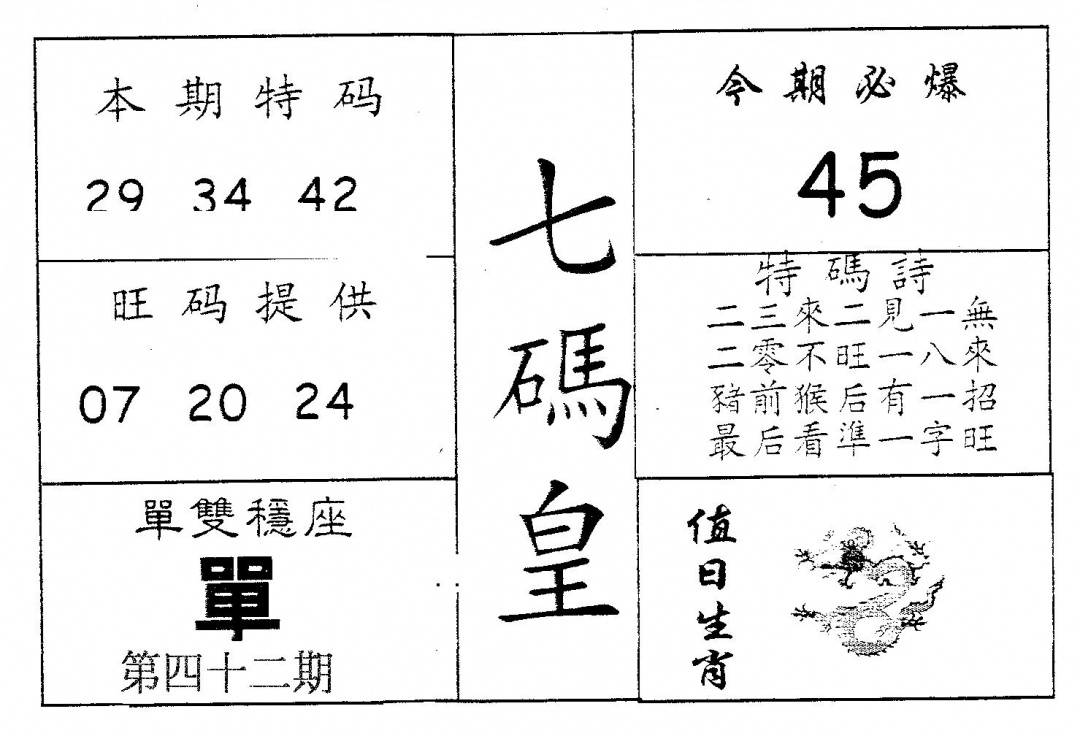 本期特码
29 34 42
旺码提供
07 20 24
單雙穩座
單
第四十二期
七碼皇
今期必爆
45
特碼詩
二三來二見一無
二零不旺一八來
豬前猴后有一招
最后看準一字旺
值日生肖